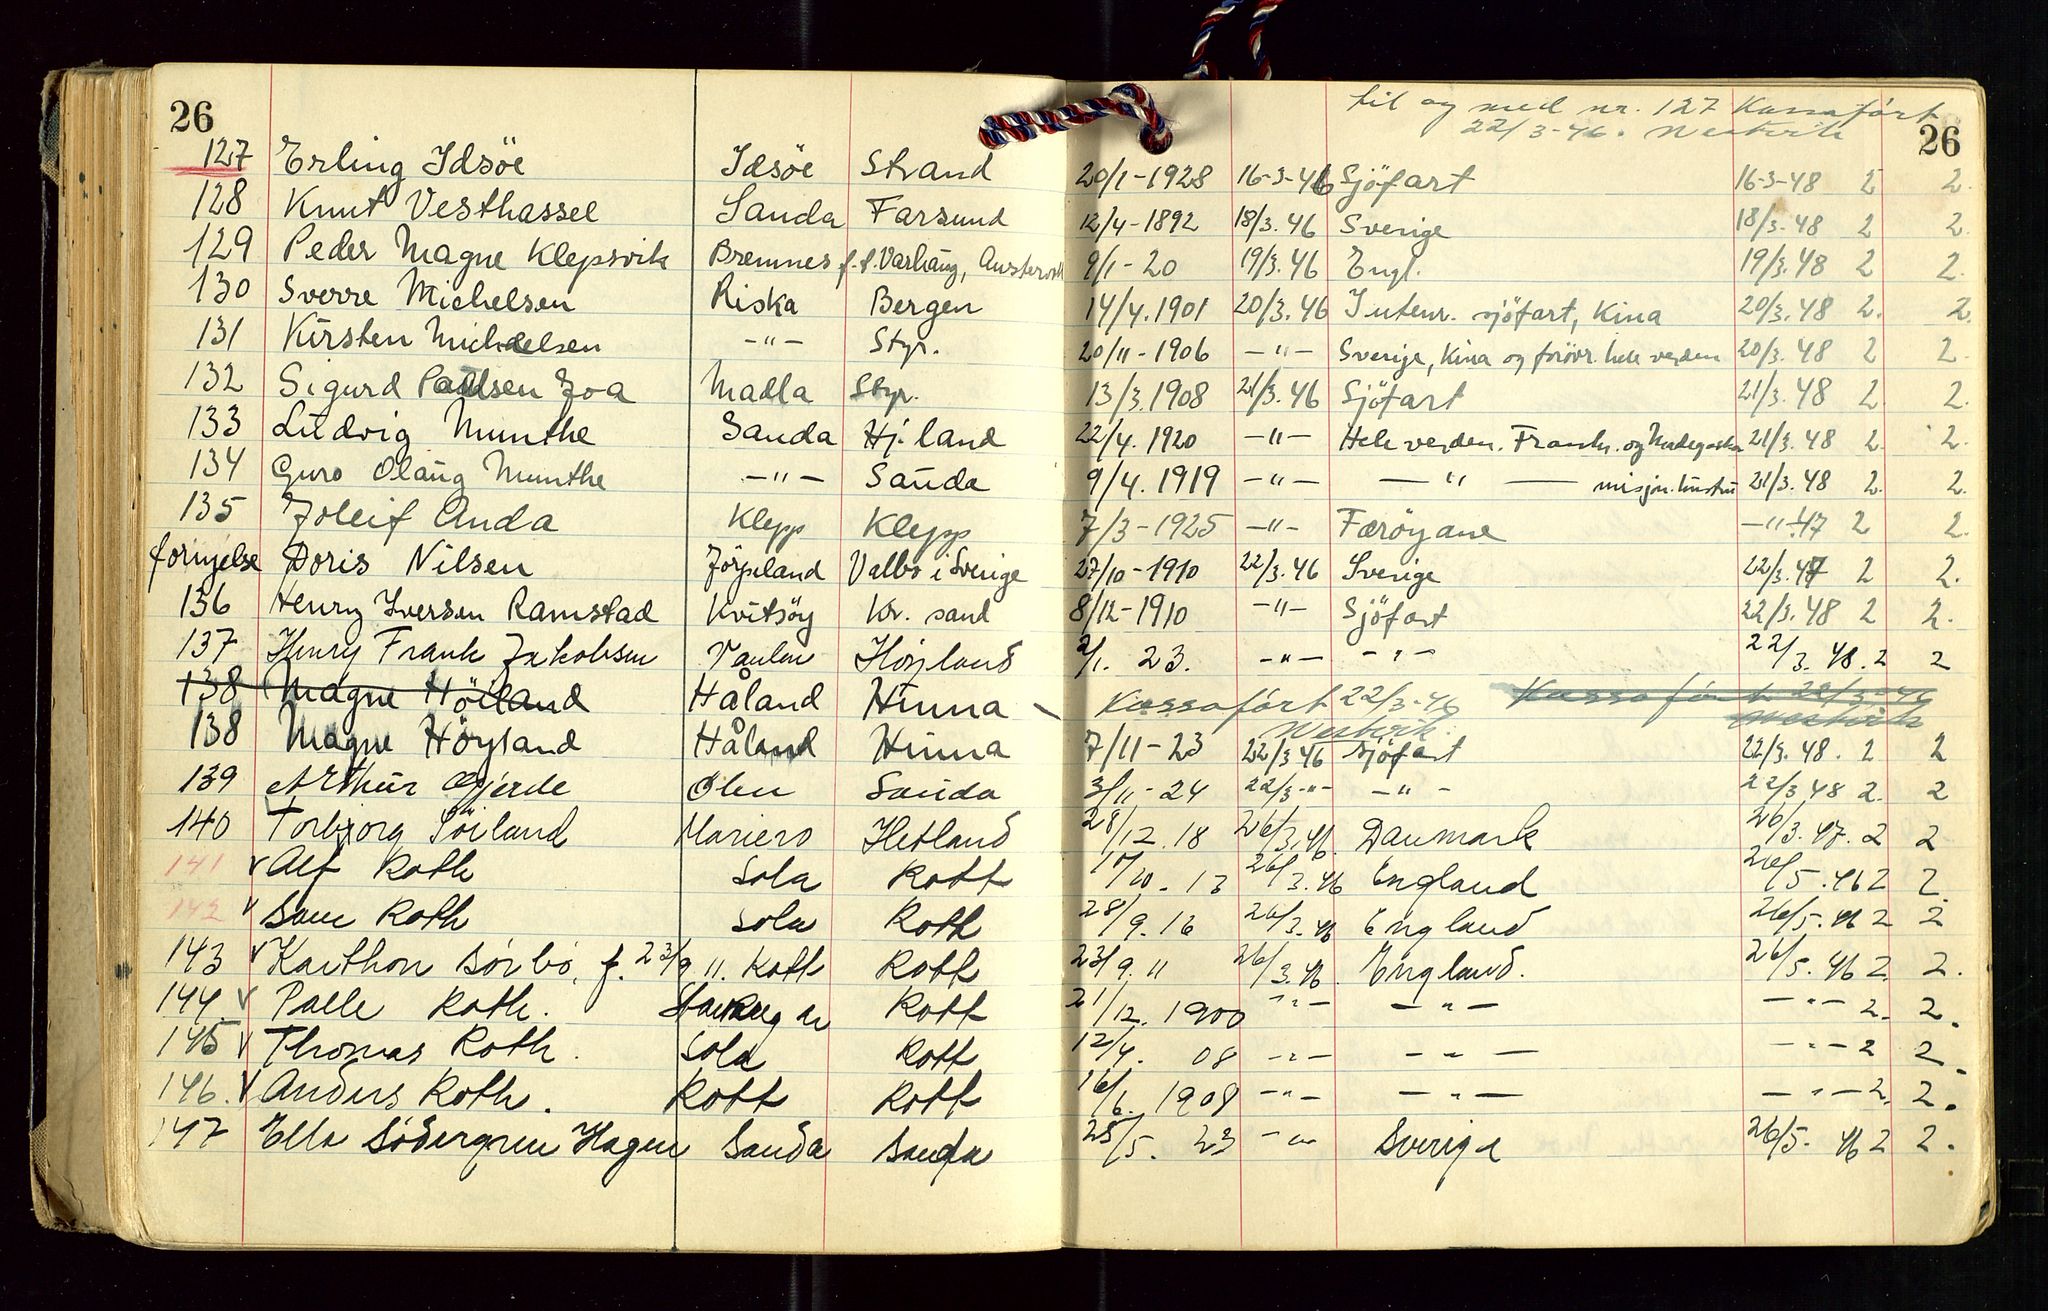 26
til og med nr. 127 Kassaført
22/3-46. Westvik
26
127 Erling Idsöe Idsöe Strand 20/1-1928 16-3-46 Sjöfart 16-3-48 2 2.
128 Knut Vesthassel Sanda Farsund 12/4-1892 18/3.46 Sverige 18/3-48 2 2.
129 Peder Magne Klepsvik Bremnes f. f. Varhaug, 9/1-20 19/3.46 Engl. 19/3.48 2 2.
130 Sverre Michelsen Riska Bergen 14/4.1901 20/3.46 Intenr. sjöfart, Kina 20/3.48 2. 2.
131 Kirsten Michelsen -"- Styr. 20/11-1906 -"- Sverige, Kina og forövr. hele verden 20/3.48 2 2.
132 Sigurd Paulsen Joa Madla Styr. 13/3.1908 21/3.46 Sjöfart 21/3.48 2. 2.
133 Ludvig Munthe Sauda Hj.land 22/4.1920 -"- Hele verden. Frankr. og Madegaskar 21/3.48 2 2.
134 Guro Olaug Munthe -"- Sauda 9/4.1919 -"- -"- misjon. 21/3.48 2. 2.
135 Joleif Anda Klepp Klepp 7/3-1925 -"- Færöyane -"-.47 2 2.
fornyelse Doris Nilsen Jörpeland Valbo i Sverige 27/10-1910 22/3.46 Sverige 22/3.47 2 2.
136 Henry Iversen Ramstad Kvitsöy Kr. sand 8/12-1910 -"- Sjöfart 22/3.48 2 2.
137 Henry Frank Jakobsen Vaulen Höyland 2/1. 23. -"- -"- 22/3.48.2 2
138 Magne Höiland Håland Hinna Kassaført 22/3-46 Kassaført 22/3-46
Westvik. Westvik
138 Magne Höyland Håland Hinna 7/11-23 22/3 46 Sjöfart 22/3.48. 2 2
139 Arthur Gjerde Ølen Sauda 3/11-24 22/3-"- -"- 22/3 48 2. 2
140 Torbjørg Söiland Mariero Hetland 28/12.18 26/3.46. Danmark 26/3.47.2 2
141 v Alf Roth Sola Rott 17/10-13 26/3.46 England 26/5.46 2 2.
142 v Sam Roth Sola Roth 28/9.16 26/3.46 England 26/5.46 2 2
143 v Karthon Sørbö, f. 23/9 11. Rott Rott 23/9 11 26/3.46 England. 26/5.46 2. 2.
144. v Palle Roth. Stavanger Rott 21/12.1900 -"- -"- -"- 2. 2.
145 v Thomas Roth. Sola Rott 12/4. 08 -"- -"- -"- 2 2.
146. v Anders Roth. Rott Rott 16/6. 1908 -"- -"- -"- 2. 2.
147 Ella Södergren Hagen Sauda Sauda 25/5. 23 -"- Sverige 26/5. 46 2 2.